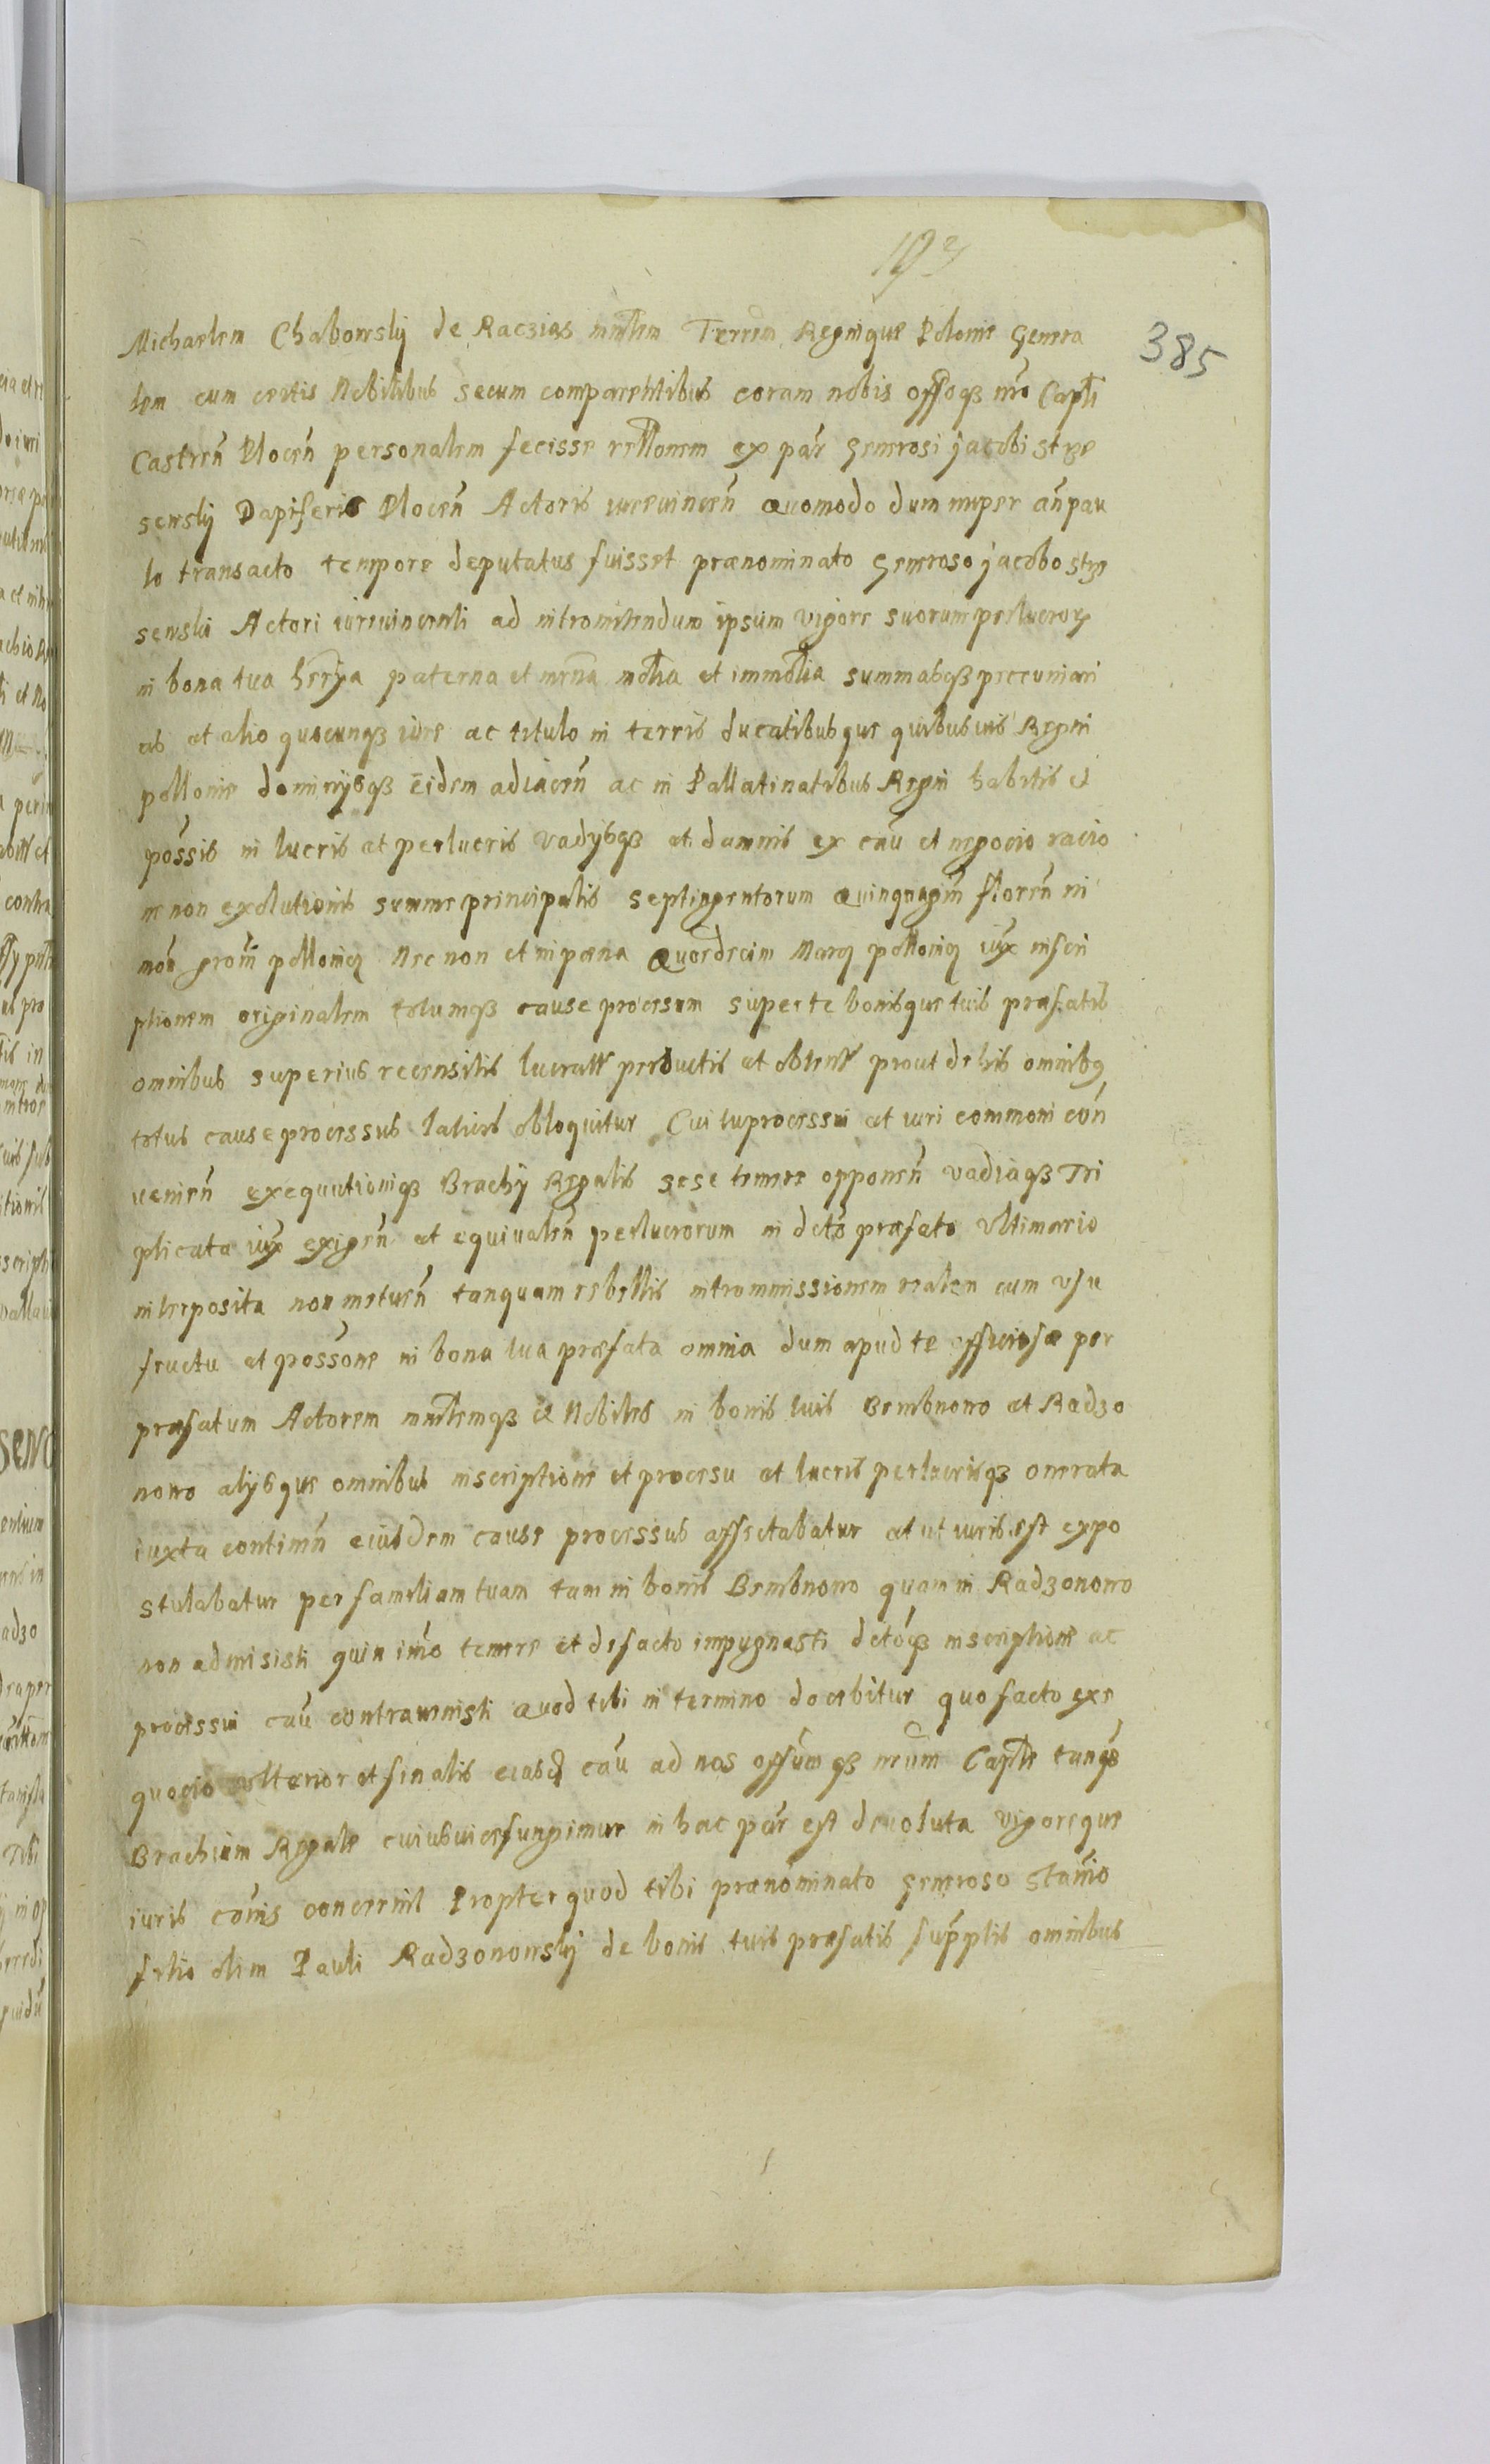 193
385
Michaelem Chabowsky de Racziąs mnłem Terrarm Regnique Polonie Genera
lem cum certis Nobilibus secum comparentibus coram nobis offoqȝ nro Capti
Castren̄ Plocen̄ personalem fecisse rellonem ex par̄ Generosi jacobi strze
sewsky Dapiferis Plocen̄ Actoris iurevincen̄ Quomodo dum nuper an̄ pau
lo transacto tempore deputatus fuisset prænominato Generoso jacobo strze
sewski Actori iurevincenti ad intromittendum ipsum vigore suorum perlucrorȝ
in bona tua hrrȳa paterna et mrna molia et immolia summasqȝ pecuniari
as et alio quocunqȝ iure ac titulo in terris ducatibusque quibusvis Regni
pollonie dominijsqȝ eidem adiacen̄ ac in Pallatinatibus Regni habitis et
possis in lucris et perlucris vadijsqȝ et damnis ex cau et negocio racio
ne non exolutionis summe principalis septingentorum Quinquagin̄ floren̄ in
mon̄ grom̄ pollonicȝ Nec non et in pœna Quordecim Marcȝ pollonicȝ iux̄ inscri
ptionem originalem totumqȝ cause processum super te bonisque tuis præfatis
omnibus superius recensitis lucratis productis et obtentis prout de his omnibȝ
totus cause processus latius obloquitur Cui tu processui et iuri commoni con̄
venien̄ exequutioniqȝ Brachij Regalis sese temere opponen̄ vadiaqȝ Tri
plicata iux̄ exigen̄ et equivalen̄ perlucrorum in dcto præfato Ultimario
interposita non metuen̄ tanquam rebellis intromissionem realem cum usu
fructu et possone in bona tua præfata omnia dum apud te officiosæ per
præfatum Actorem mnłemqȝ et Nobiles in bonis tuis Bembnowo et Radzo
nowo alijsque omnibus inscriptione et processu et lucris perlucrisqȝ onerata
iuxta continen̄ eiusdem cause processus affectabatur et ut iuris est expo
stulabatur per familiam tuam tam in bonis Bembnowo quam in Radzonowo
non admisisti quin imo temere et defacto impugnasti dctoqȝ inscriptione ac
processui cau contravenisti Quod tibi in termino docebitur quo facto exe
quocio ulterior et finalis eiusd cau ad nos offumqȝ nrum Captle tanqȝ
Brachium Regale cuius vices fungimur in hac par̄ est devoluta vigoreque
iuris comis concernit Propter quod tibi prænominato Generoso Stanio
filio olim Pauli Radzonowsky de bonis tuis præfatis supptis omnibus